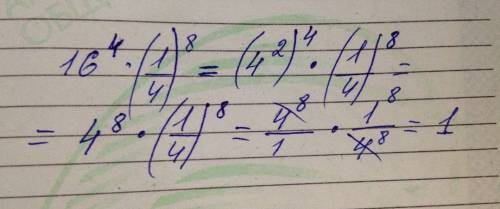 ОБЩ
16⁴ · (1/4)⁸ = (4²)⁴ · (1/4)⁸ =
= 4⁸ · (1/4)⁸ = 4⁸/1 · 1⁸/4⁸ = 1